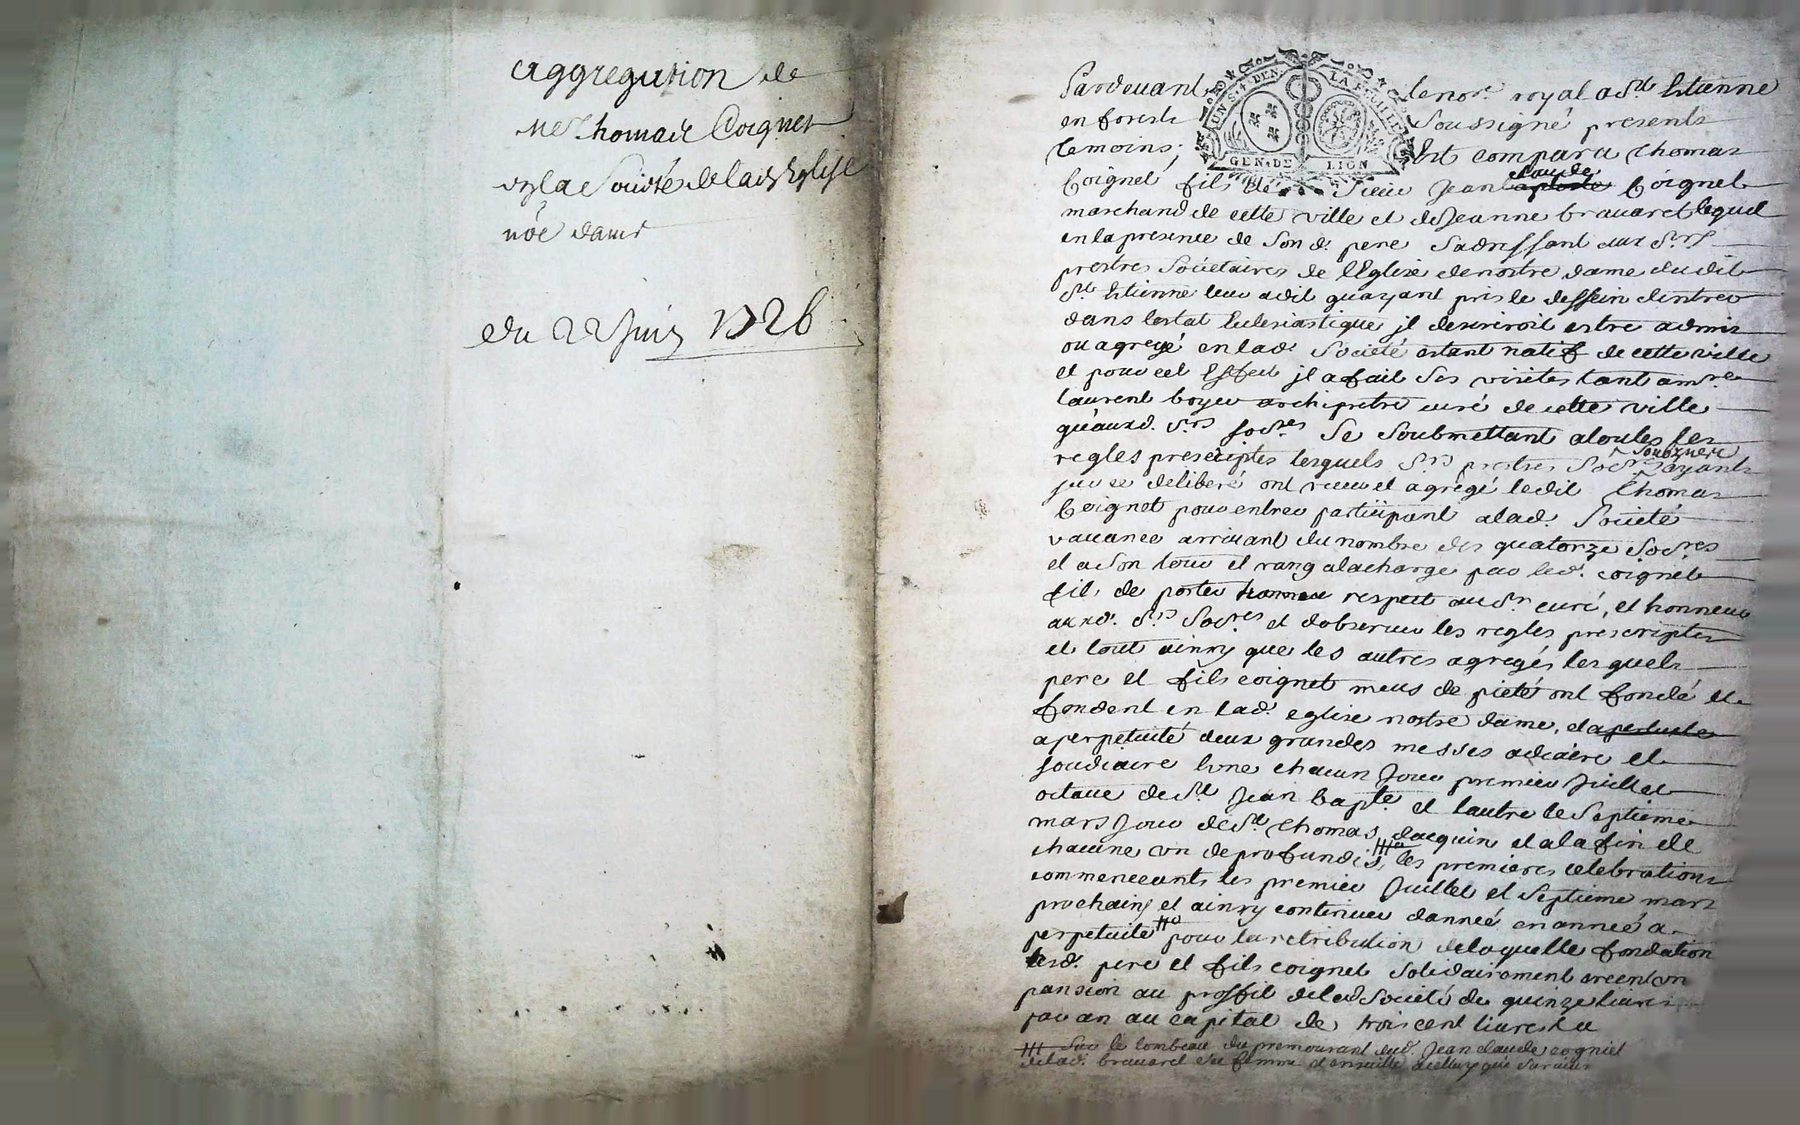 aggregation de
Me Thomas Coignet
en la Societé de lad. Eglise
nôe dame
du 22 Juin 1726
UN S. 4 DEN. LA FEUILLE
GEN. DE LION
Pardevant le nore. royal a St. Estienne
en forests soussigné presents
temoins, Est comparu Thomas
Coignet fils de Sieur Jean claude Coignet
marchand de cette ville et de Jeanne brauaret lequel
en la presence de son d. pere sadressant aux Srs.
prestres Sociétaires de lEglise de nostre dame dudit
St. Estienne leur a dit quayant pris le dessein dentrer
dans lestat Eclesiastique jl desireroit estre admis
ou agregé en lad. Societé estant natif de cette ville
et pour cet Effect jl a fait ses visites tant a msre.
laurent boyer archiprêtre curé de cette ville
quauxd. Srs. socres. se soubmettant a toutes les
regles prescriptes lesquels Srs. prestres Socres. soubznere ayants
sur ce deliberé ont receu et agregé ledit Thomas
Coignet pour entrer participant a lad. Societé
vacance arriuant du nombre des quatorze Socres
et a son tour et rang a la charge par led. coignet
fils de porter respect au Sr. curé, et honneur
auxd. Srs. Socres et dobseruer les regles prescriptes
et tout ainsy que les autres agregés lesquels
pere et fils coignet meus de pieté ont fondé et
fondent en lad. eglise nostre dame, et
a perpetuité deux grandes messes a diacre et
soudiacre lune chacun Jour premier Juillet
octaue de St. Jean bapte et lautre le Septieme
mars Jour de St. Thomas dacquin et a la fin de
chacune vn de profundis, les premieres celebrations
commenceants les premier Juillet et Septieme mars
prochains et ainsy continuer dannée en année a
perpetuité pour la retribution de laquelle fondation
lesd. pere et fils coignet solidairement creent vn
pansion au proffit de lad Societé de quinze liures
par an au capital de trois cent liures
sur le tombeau du premourant dud. Jean claude cogniet
de lad. brauaret sa femme et ensuitte